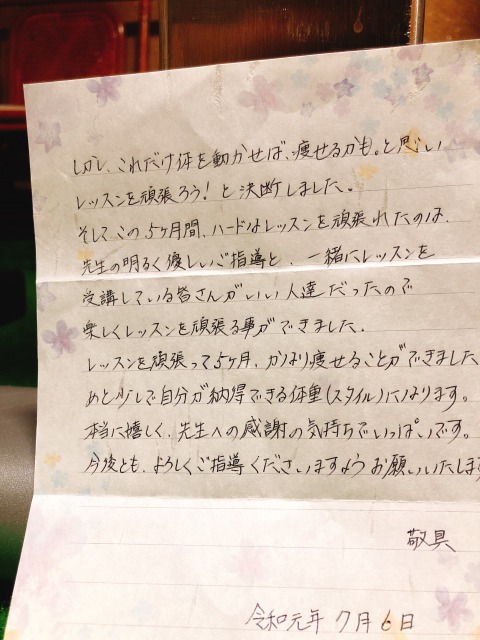 しかし、これだけ体を動かせば、痩せるかも。と思い
レッスンを頑張ろう！と決断しました。
そしてこの5ヶ月間、ハードなレッスンを頑張れたのは、
先生の明るく優しいご指導と、一緒にレッスンを
受講している皆さんがいい人達だったので
楽しくレッスンを頑張る事ができました。
レッスンを頑張って5ヶ月、かなり痩せることができました
あと少しで自分が納得できる体重(スタイル)になります。
本当に嬉しく、先生への感謝の気持ちでいっぱいです。
今後とも、よろしくご指導くださいますようお願いいたします
敬具
令和元年 7月6日